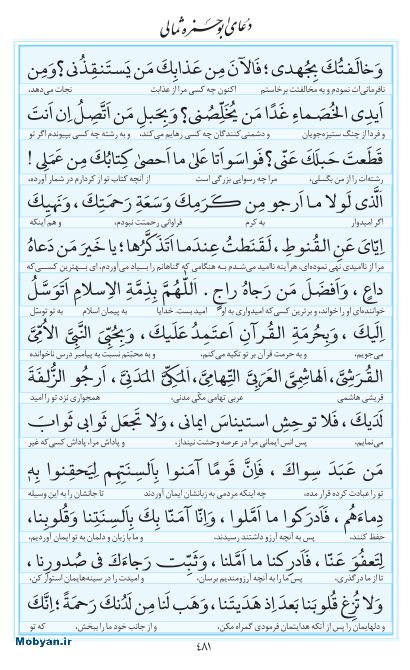 دعای ابوحمزه ثمالی
وَخالَفتُكَ بِجُهدى؛ فَالآنَ مِن عَذابِكَ مَن يَستَنقِذُنى؟ وَمِن
نافرمانی‌ات نمودم و به مخالفتت برخاستم اکنون چه کسی مرا از عذابت نجات می‌دهد،
اَيدِى الخُصَماءِ غَدًا مَن يُخَلِّصُنى؟ وَبِحَبلِ مَن اَتَّصِلُ اِن اَنتَ
و فردا از چنگ ستیزه‌جویان و دشمنی‌کنندگان چه کسی رهایم می‌کند، و به رشته چه کسی بپیوندم اگر تو
قَطَعتَ حَبلَكَ عَنّى؟ فَواسَوأَتا عَلىٰ ما اَحصىٰ كِتابُكَ مِن عَمَلِى !
رشته‌ات را از من بگسلی، مرا چه رسوایی بزرگی است از آنچه کتاب تو از کردارم در شمار آورده،
اَلَّذى لَولا ما اَرجو مِن كَرَمِكَ وَسَعَةِ رَحمَتِكَ، وَنَهيِكَ
اگر امیدوار به کرم فراوانی رحمتت نبودم، و هم اینکه
اِيّاىَ عَنِ القُنوطِ، لَقَنَطتُ عِندَما اَتَذَكَّرُها؛ يا خَيرَ مَن دَعاهُ
مرا از ناامیدی نهی نموده‌ای، هرآینه ناامید می‌شدم به هنگامی که گناهانم را بیاد می‌آوردم، ای بهترین کسی‌که
داعٍ، وَاَفضَلَ مَن رَجاهُ راجٍ. اَللّٰهُمَّ بِذِمَّةِ الاِسلامِ اَتَوَسَّلُ
خواننده‌ای او را خواند، و برترین کسی که امیدواری به او امید بست. خدایا به پیمان اسلام به تو توسّل
اِلَيكَ، وَبِحُرمَةِ القُرآنِ اَعتَمِدُ عَلَيكَ، وَبِحُبِّىَ النَّبِىَّ الاُمِّىَّ
می‌جویم، و به حرمت قرآن بر تو تکیه می‌کنم، و به محبّتم نسبت به پیامبر درس ناخوانده
القُرَشِىَّ، اَلهاشِمِىَّ العَرَبِىَّ التِّهامِىَّ، اَلمَكِّىَّ المَدَنِىَّ، اَرجُو الزُّلفَةَ
قریشی هاشمی عربی تهامی مکّی مدنی، همجواری نزد تو را امید
لَدَيكَ، فَلا توحِشِ استيناسَ ايمانى، وَلا تَجعَل ثَوابى ثَوابَ
می‌نمایم، پس انس ایمانی مرا در عرصه وحشت نینداز، و پاداش مرا، پاداش کسی که غیر
مَن عَبَدَ سِواكَ، فَاِنَّ قَومًا آمَنوا بِاَلسِنَتِهِم لِيَحقِنوا بِهِ
تو را عبادت کرده قرار مده، چه اینکه مردمی به زبانشان ایمان آوردند تا جانشان را به این وسیله
دِماءَهُم، فَاَدرَكوا ما اَمَّلوا، وَاِنّا آمَنّا بِكَ بِاَلسِنَتِنا وَقُلوبِنا،
حفظ کنند، پس به آنچه آرزو داشتند رسیدند، و ما با زبان و دلمان به تو ایمان آوردیم،
لِتَعفُوَ عَنّا، فَاَدرِكنا ما اَمَّلنا، وَثَبِّت رَجاءَكَ فى صُدورِنا،
تا از ما درگذری، پس ما را به آنچه آرزومندیم برسان، و امیدت را در سینه‌هایمان استوار کن،
وَلا تُزِغ قُلوبَنا بَعدَ اِذ هَدَيتَنا، وَهَب لَنا مِن لَدُنكَ رَحمَةً؛ اِنَّكَ
و دلهایمان را پس از آنکه هدایتمان فرمودی گمراه مکن، و از جانب خود ما را ببخش، که تو
۴۸۱
Mobyan.ir